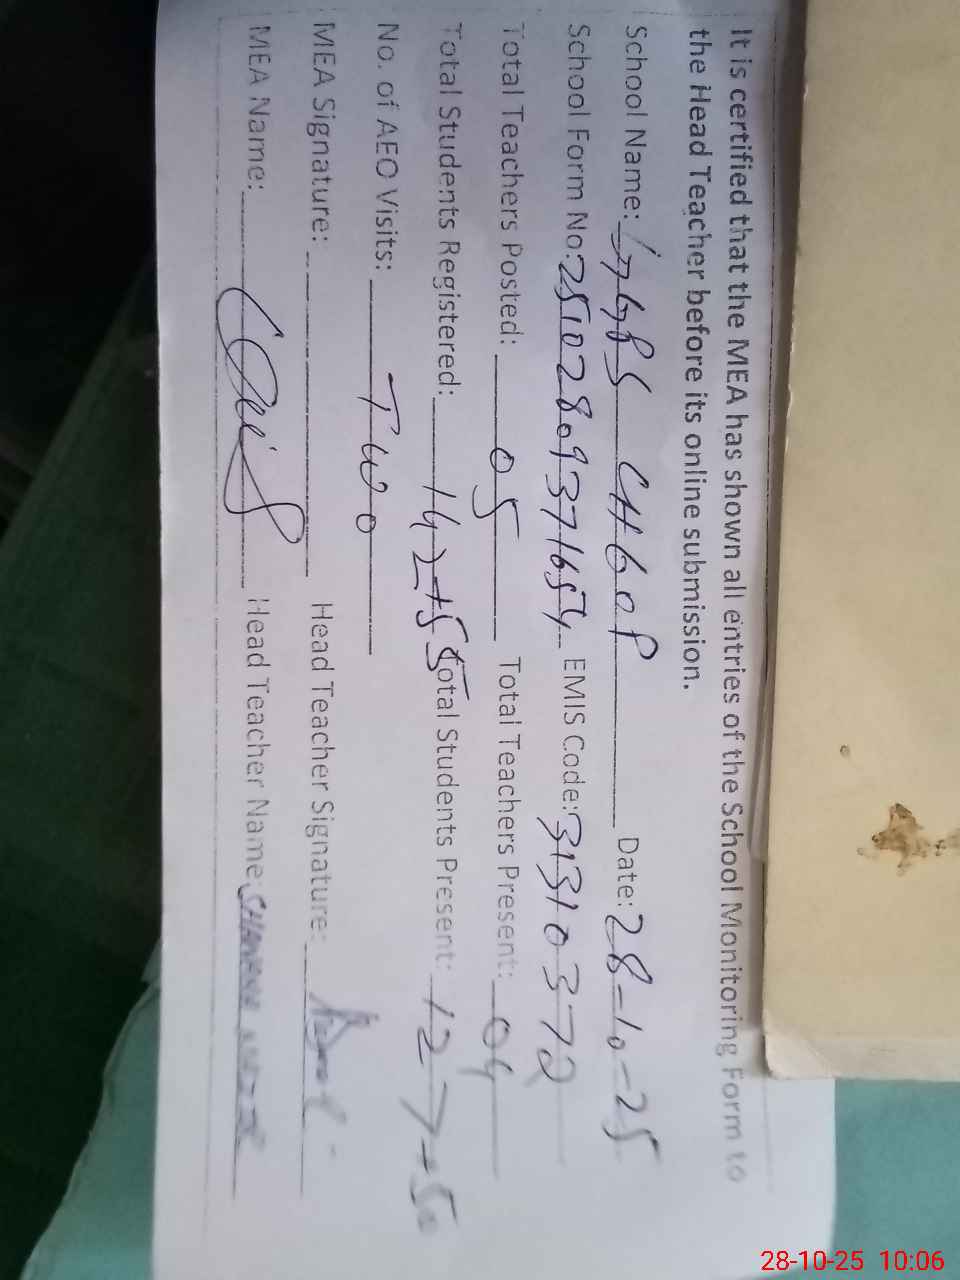 It is certified that the MEA has shown all entries of the School Monitoring Form to
the Head Teacher before its online submission.
School Name: Date: 28-10-25
School Form No: EMIS Code: 31310372
Total Teachers Posted: 05 Total Teachers Present: 04
Total Students Registered: 142+55 Total Students Present: 127+50
No. of AEO Visits: Two
MEA Signature: Head Teacher Signature:
MEA Name: Head Teacher Name:
28-10-25 10:06